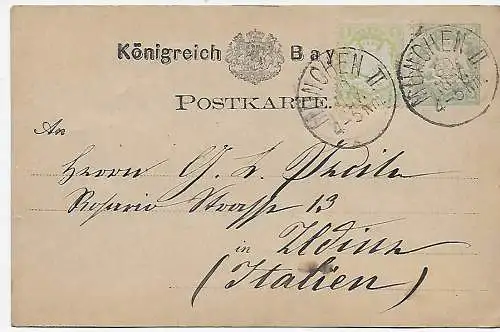 Königreich Bay
POSTKARTE.
MÜNCHEN II
4-5 NM.
MÜNCHEN II
4-5 NM.
An
Herrn G. L.
Rosario Strasse 13
in Udine
(Italien)